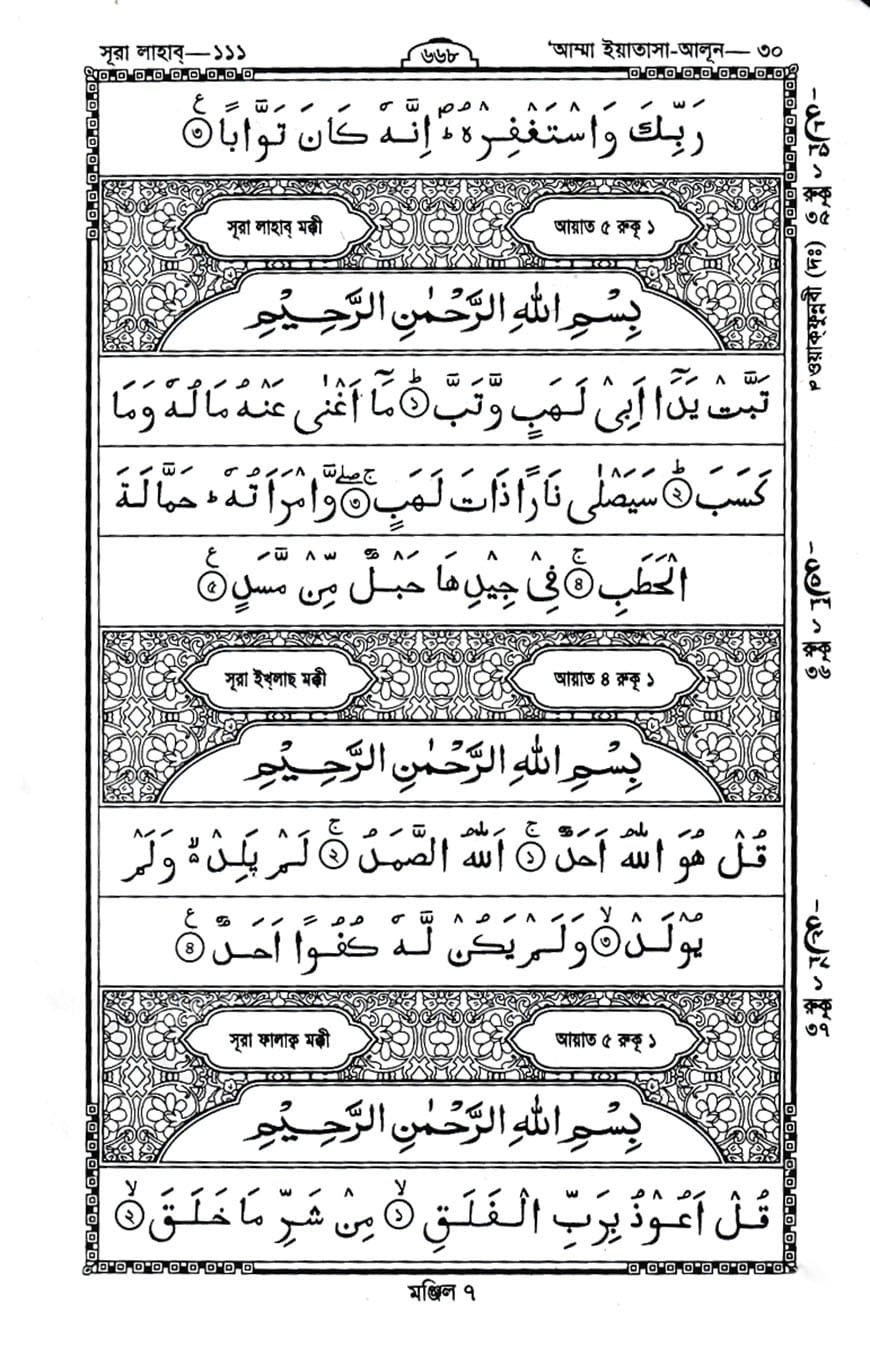 সূরা লাহাব্—১১১
৬৬৮
'আম্মা ইয়াতাসা-আলূন— ৩০
رَبِّكَ وَاسْتَغْفِرْهُ ؕ اِنَّهٗ كَانَ تَوَّابًا ۝۳ ع
সূরা লাহাব্ মক্কী
আয়াত ৫ রুকূ ১
بِسْمِ اللهِ الرَّحْمٰنِ الرَّحِيْمِ
تَبَّتْ يَدَاۤ اَبِىْ لَهَبٍ وَّتَبَّ ؕ ۝১ مَاۤ اَغْنٰى عَنْهُ مَالُهٗ وَمَا
كَسَبَ ؕ ۝২ سَيَصْلٰى نَارًا ذَاتَ لَهَبٍ ۚۖ ۝৩ وَّامْرَاَتُهٗ ؕ حَمَّالَةَ
الْحَطَبِ ۚ ۝৪ فِىْ جِيْدِهَا حَبْلٌ مِّنْ مَّسَدٍ ۝৫ ع
সূরা ইখ্‌লাছ মক্কী
আয়াত ৪ রুকূ ১
بِسْمِ اللهِ الرَّحْمٰنِ الرَّحِيْمِ
قُلْ هُوَ اللهُ اَحَدٌ ۚ ۝১ اَللهُ الصَّمَدُ ۚ ۝২ لَمْ يَلِدْ ۙ وَلَمْ
يُوْلَدْ ۙ ۝৩ وَلَمْ يَكُنْ لَّهٗ كُفُوًا اَحَدٌ ۝৪ ع
সূরা ফালাক্ব মক্কী
আয়াত ৫ রুকূ ১
بِسْمِ اللهِ الرَّحْمٰنِ الرَّحِيْمِ
قُلْ اَعُوْذُ بِرَبِّ الْفَلَقِ ۙ ۝১ مِنْ شَرِّ مَا خَلَقَ ۙ ۝২
মঞ্জিল ৭
রুকূ ৩৫
ওয়াক্‌ফুন্নবী (দঃ)
রুকূ ৩৬
রুকূ ৩৭